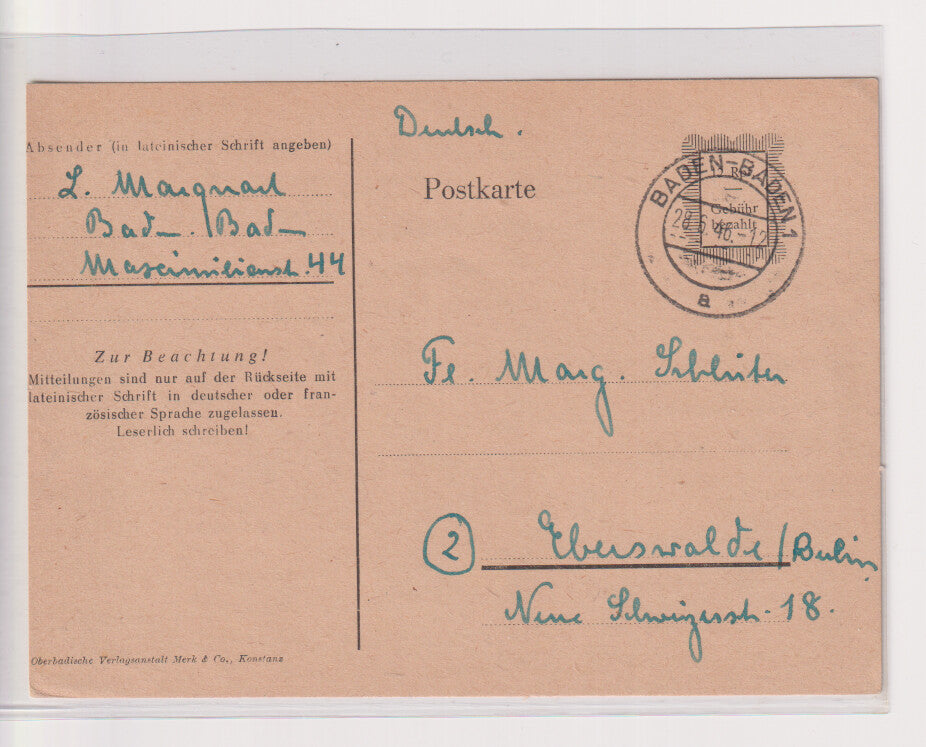 Absender (in lateinischer Schrift angeben)
L. Marquart
Baden-/Baden
Maximilianstr. 44
Zur Beachtung!
Mitteilungen sind nur auf der Rückseite mit
lateinischer Schrift in deutscher oder fran-
zösischer Sprache zugelassen.
Leserlich schreiben!
Oberbadische Verlagsanstalt Merk & Co., Konstanz
Deutsch.
Postkarte
BADEN-BADEN 1
28.6.46.-12
a
Gebühr
bezahlt
Fr. Marg. Schlüter
2 Eberswalde/Berlin
Neue Schweizerstr. 18.